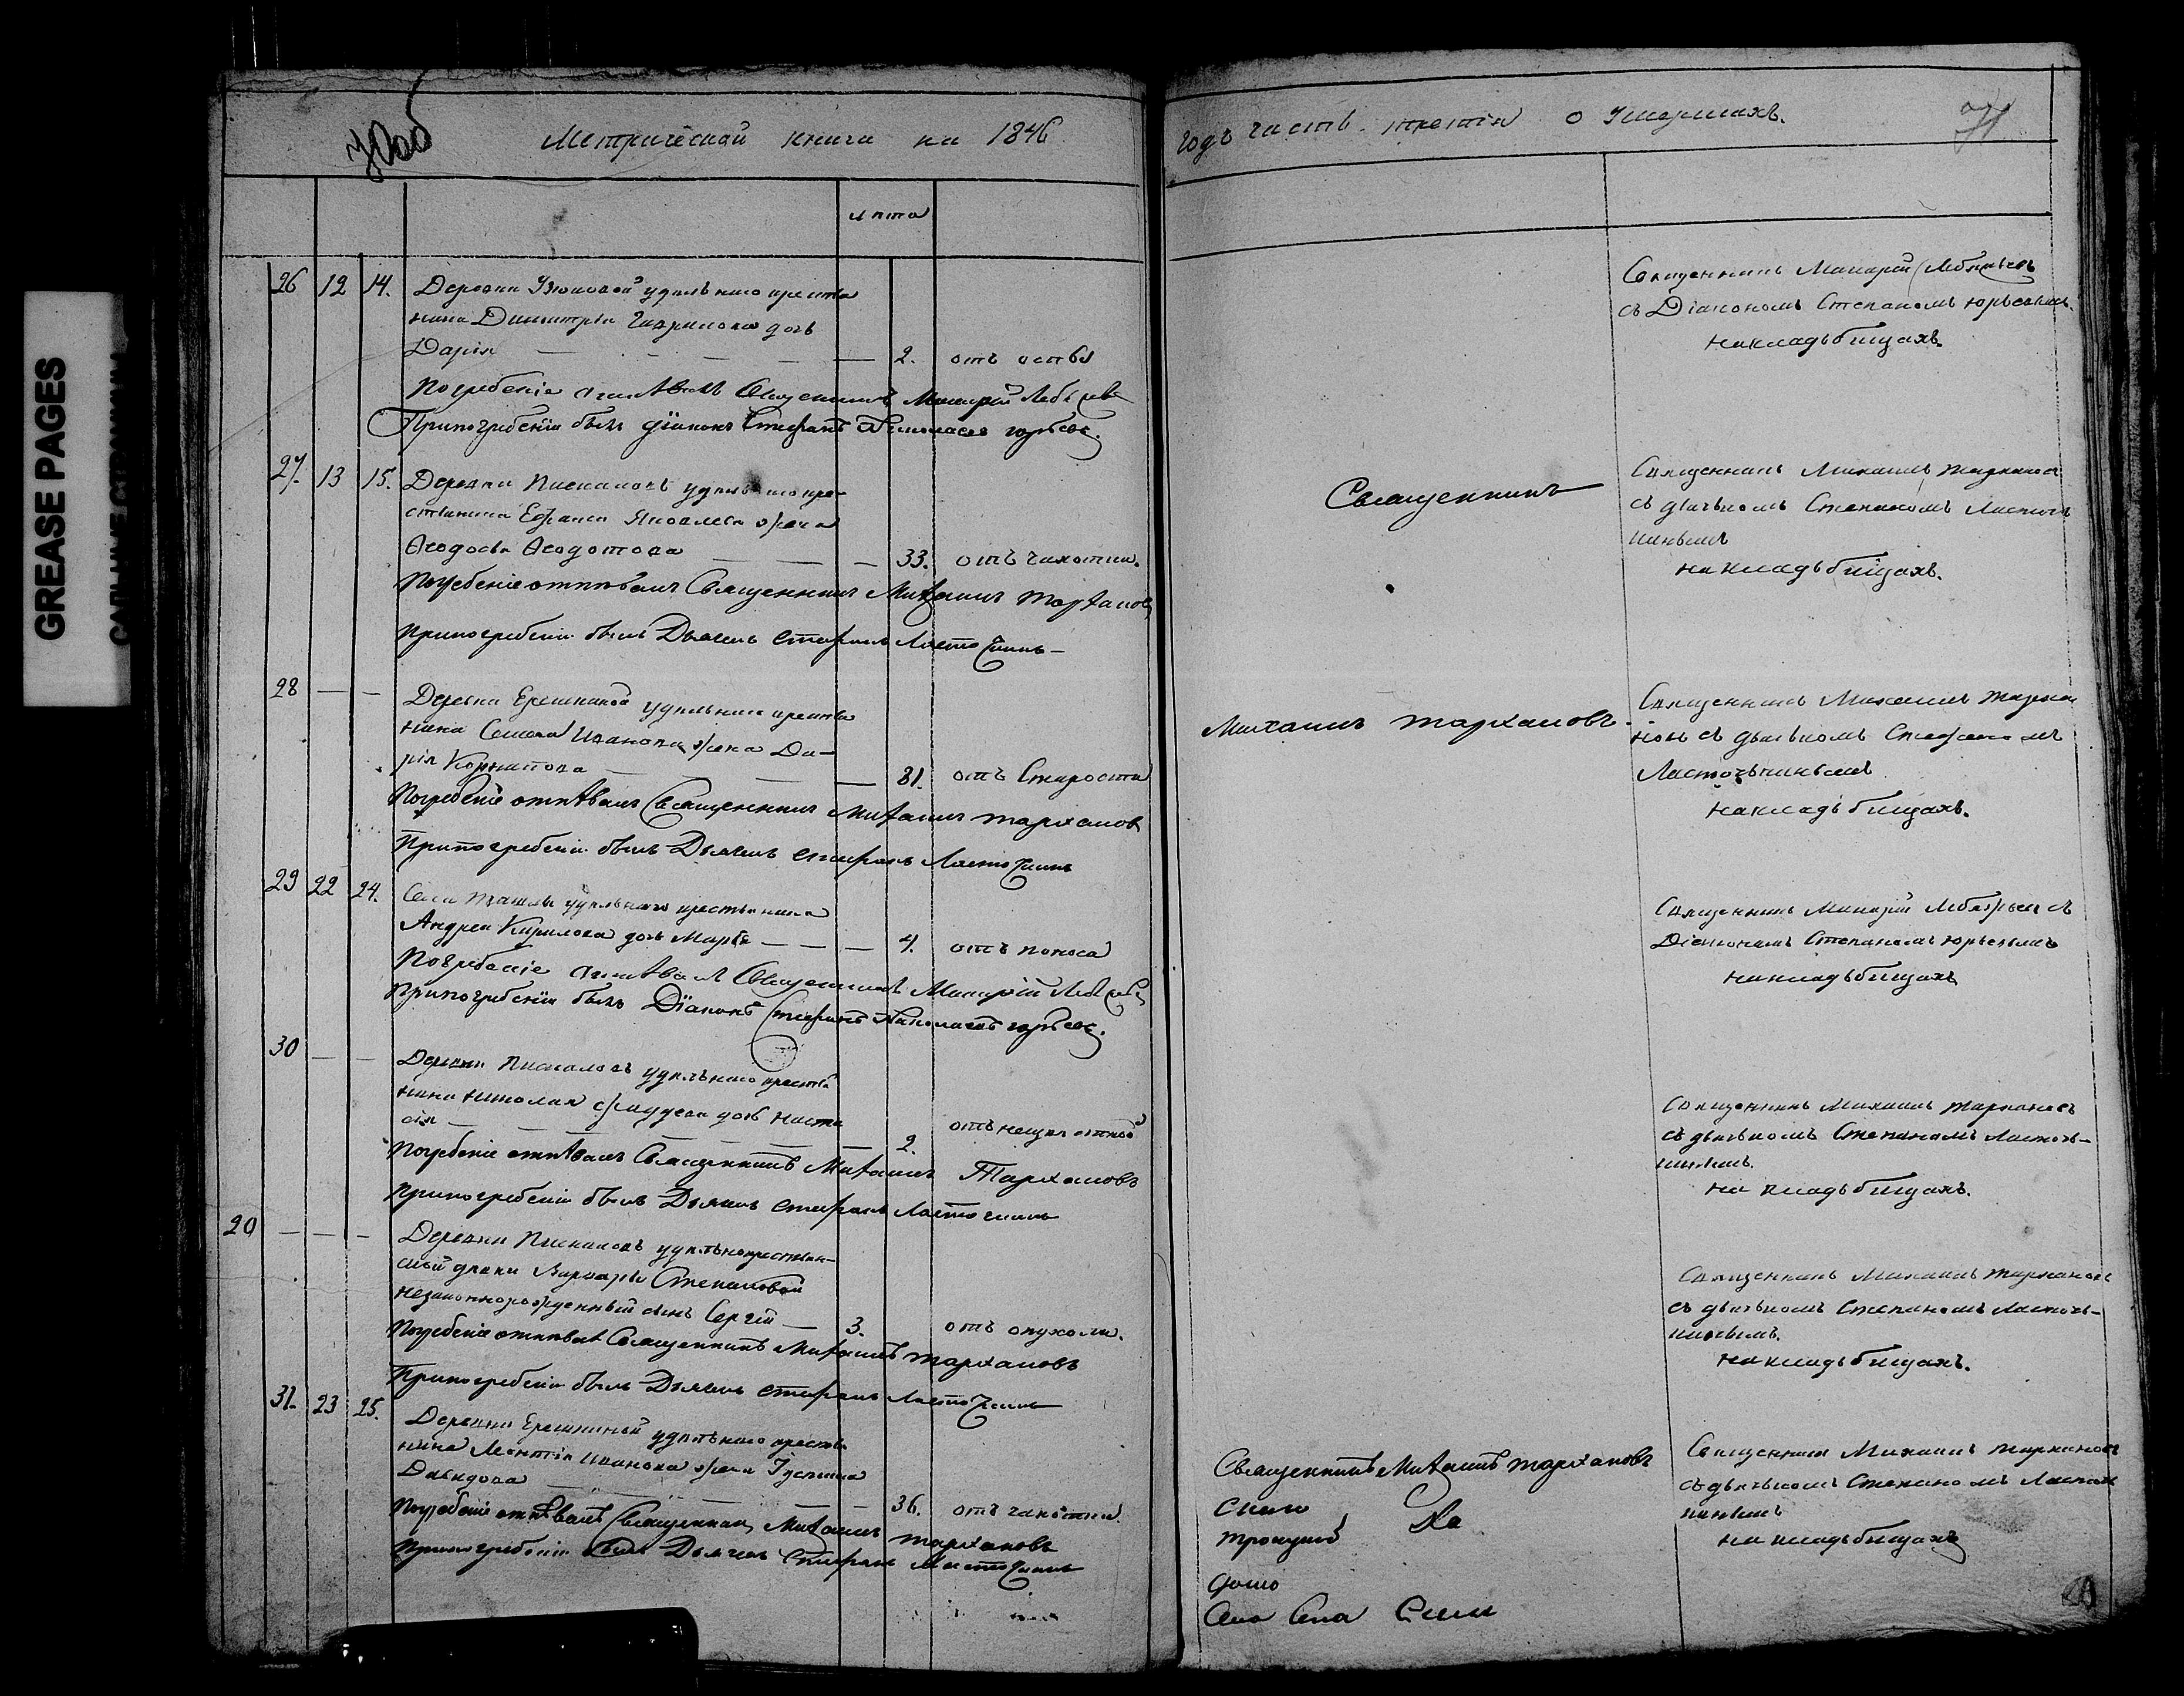 GREASE PAGES
70об
Метрической книги на 1846
лѣта
26 12 14. Деревни Узюковой удѣльнаго крестья
нина Димитрія Гаврилова дочь
Дарія — 2. отъ оспы
Погребеніе отпѣвалъ Священникъ Макарій Лебедевъ
При погребеніи былъ Діаконъ Стефанъ Николаевъ Юрьевъ.
27. 13 15. Деревни Пискаловъ удѣльнаго кре-
стьянина Ефрема Яковлева жена
Ѳеодосья Ѳеодотова — 33. отъ чахотки.
Погребеніе отпѣвалъ Священникъ Михаилъ Тарханов
При погребеніи былъ Дьячекъ Стефанъ Ласточкинъ
28 — — Деревни Еремкиной удѣльнаго крестья
нина Семена Иванова жена Да-
рія Корнилова — 81. отъ Старости
Погребеніе отпѣвалъ Священникъ Михаилъ Тарханов
При погребеніи былъ Дьячекъ Стефанъ Ласточкинъ
29 22 24. Села Ташлы удѣльнаго крестьянина
Андрея Кирилова дочь Марѳа — 4. отъ поноса
Погребеніе отпѣвалъ Священникъ Макарій Лебедевъ
При погребеніи былъ Діаконъ Стефанъ Николаевъ Юрьевъ.
30 — — Деревни Пискаловъ удѣльнаго крестья
нина Николая дочь Наста
сія — 2. отъ
Погребеніе отпѣвалъ Священникъ Михаилъ Тархановъ
При погребеніи былъ Дьячекъ Стефанъ Ласточкинъ
20 — — — Деревни Пискаловъ удѣльнокрестьян-
ской дѣвки Варвары Степановой
незаконнорожденный сынъ Сергій — 3. отъ опухоли.
Погребеніе отпѣвалъ Священникъ Михаилъ Тархановъ
При погребеніи былъ Дьячекъ Стефанъ Ласточкинъ
31. 23 25. Деревни Еремкиной удѣльнаго крестья
нина Леонтія Иванова жена Іустина
Давидова — 36. отъ чахотки.
Погребеніе отпѣвалъ Священникъ Михаилъ Тархановъ
При погребеніи былъ Дьячекъ Стефанъ Ласточкинъ
годъ часть третія о Умершихъ.
71
Священникъ Макарій Лебедевъ
съ Діакономъ Степаномъ Юрьевымъ.
на кладьбищахъ.
Священникъ
Священникъ Михаилъ Тарханов
съ дьячькомъ Степаномъ Ласточ
кинымъ
на кладьбищахъ.
Михаилъ Тархановъ.
Священникъ Михаилъ Тарха
новъ съ дьячькомъ Стефаномъ
Ласточькинымъ
на кладьбищахъ.
Священникъ Макарій Лебедевъ съ
Діакономъ Степаномъ Юрьевымъ
на кладьбищахъ
Священникъ Михаилъ Тархановъ
съ дьячькомъ Степаномъ Ласточь-
кинымъ.
на кладьбищахъ.
Священникъ Михаилъ Тархановъ
съ дьячькомъ Степаномъ Ласточь-
кинымъ.
на кладьбищахъ.
Священникъ Михаилъ Тархановъ
Священникъ Михаилъ Тархановъ
съ дьячькомъ Степаномъ Ласточ
кинымъ
на кладьбищахъ
Села Села